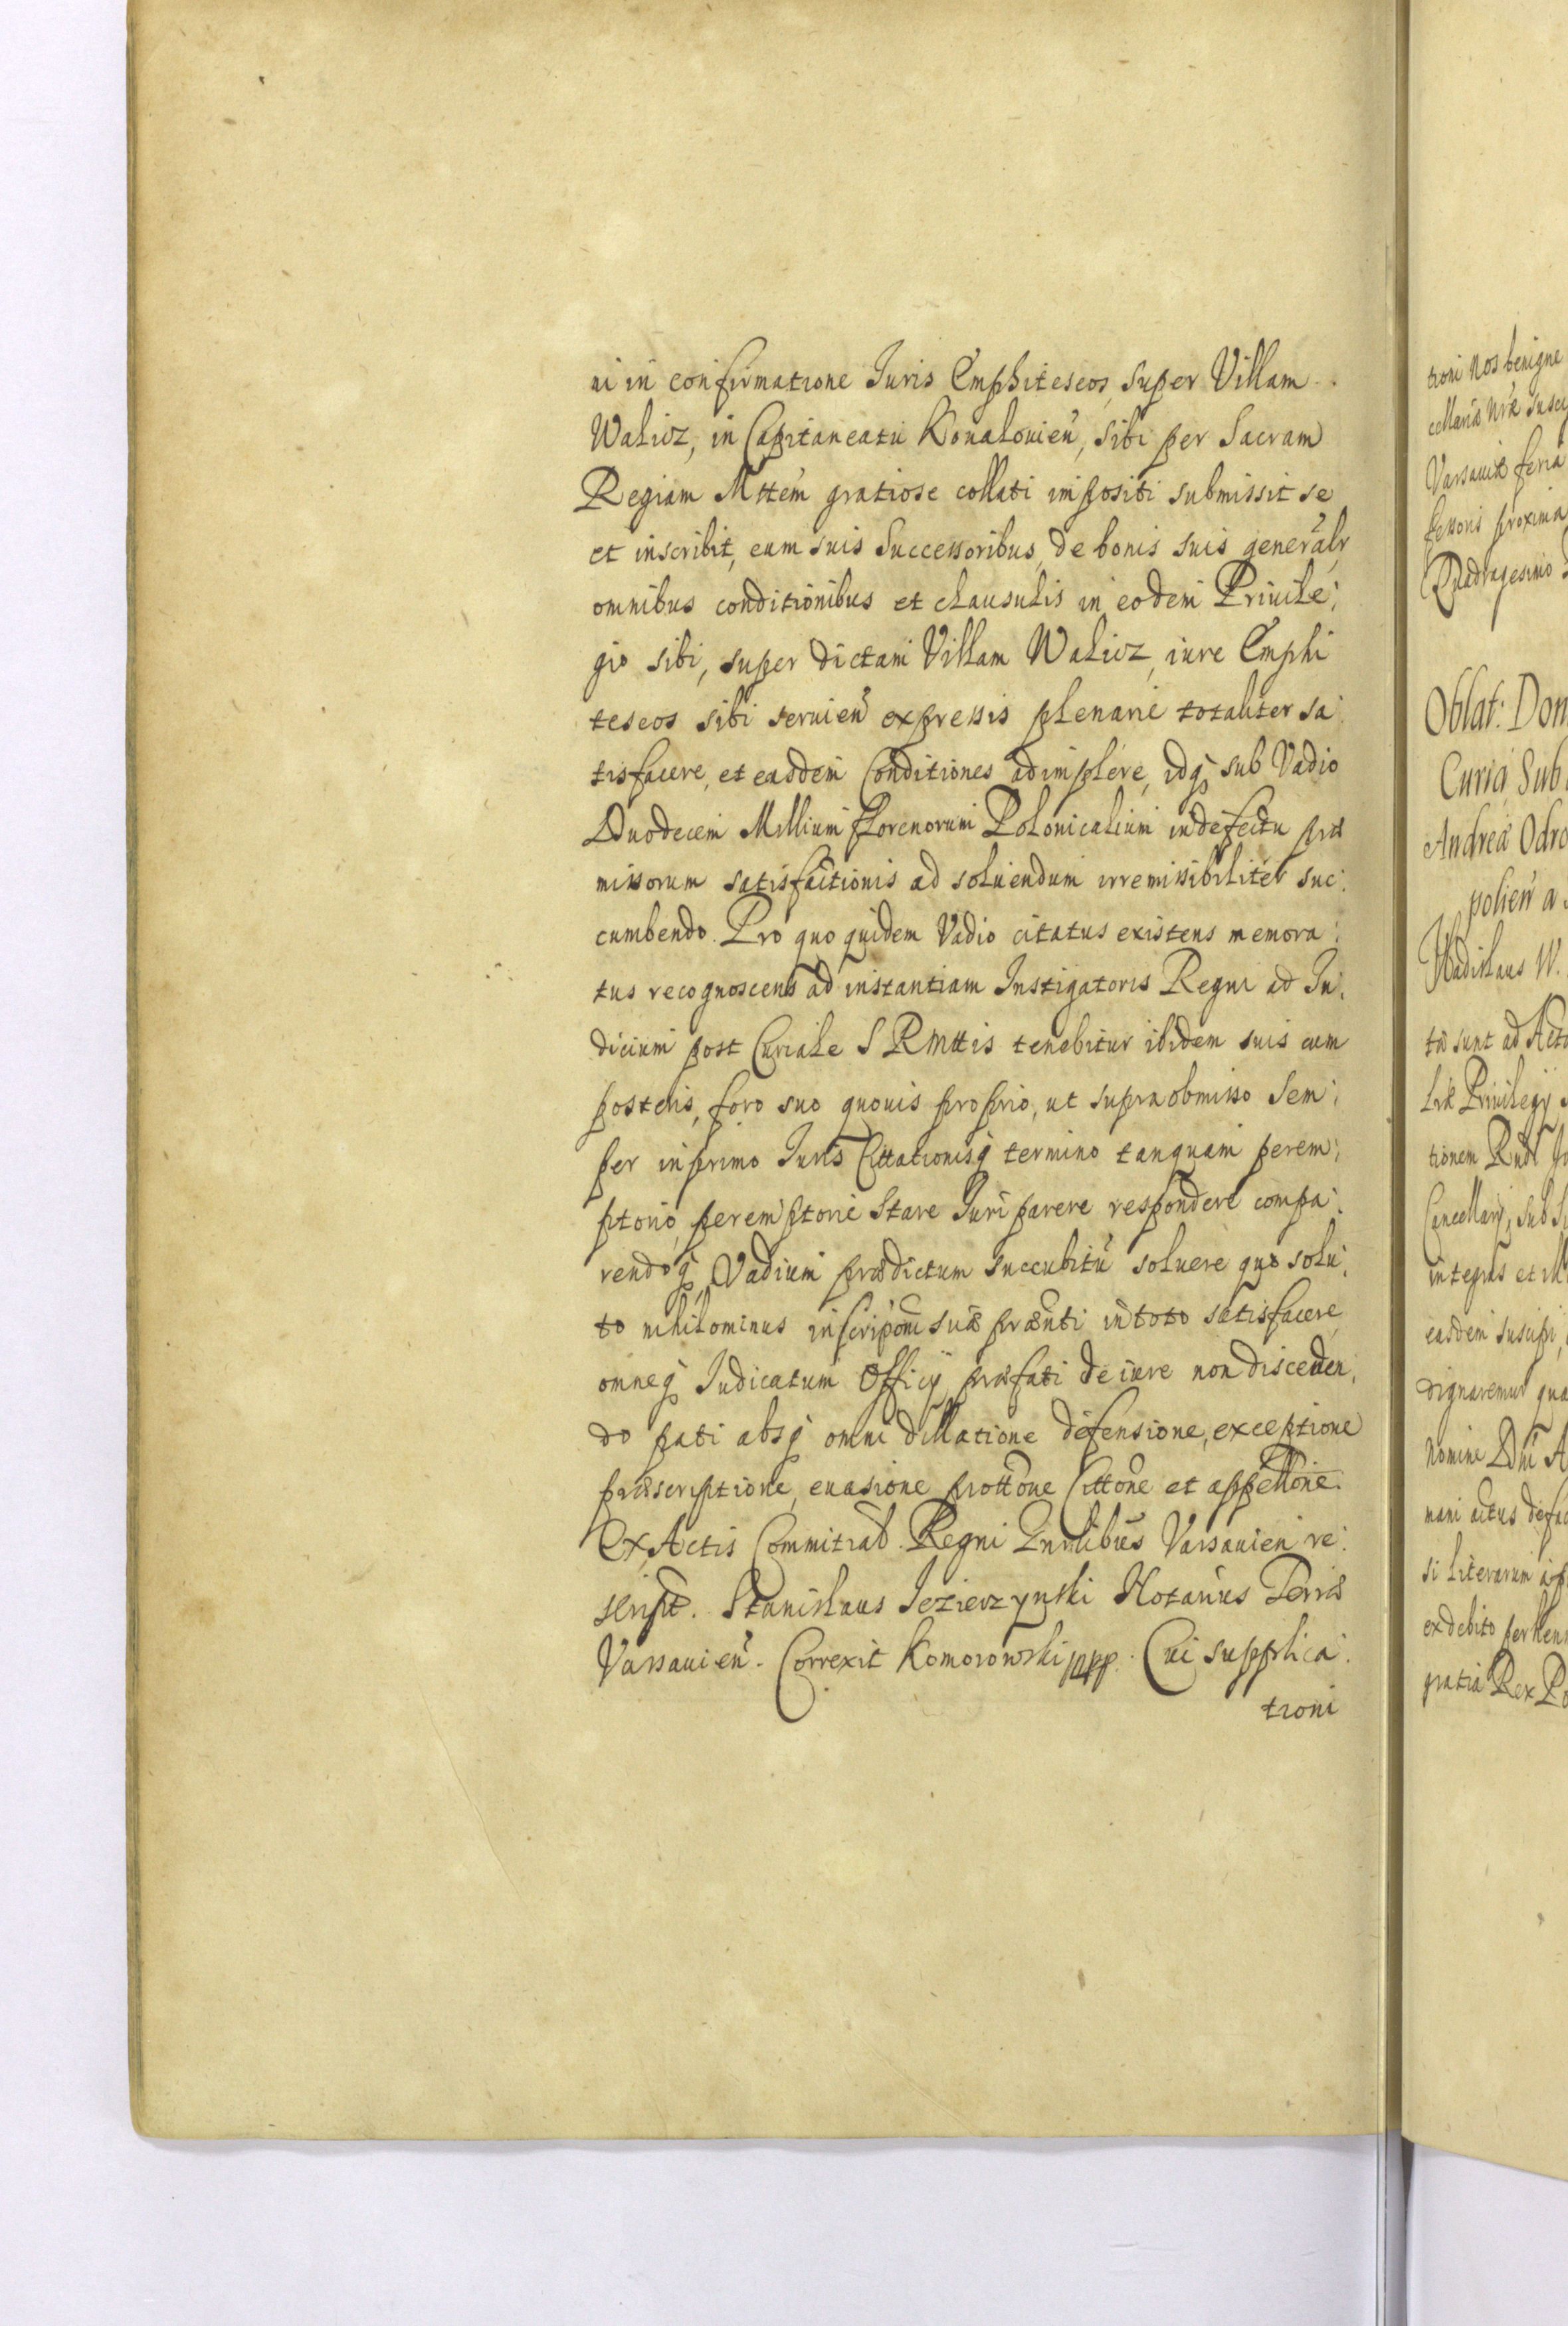 ni in confirmatione Juris Emphiteseos, super Villam
Walicz, in Capitaneatu Konalouien, sibi per Sacram
Regiam Mttem gratiose collati impositi submissit se
et inscribit, cum suis Successoribus, de bonis suis generalr
omnibus conditionibus et clausulis in eodem Priuile:
gio sibi, super dictam Villam Walicz, iure Emphi
teseos sibi seruien expressis plenarie totaliter sa:
tisfacere, et easdem Conditiones adimplere, idq sub Vadio
Duodecem Millium florenorum Polonicalium in defectu præ
missorum satisfactionis ad soluendum irremissibiliter suc:
cumbendo. Pro quo quidem Vadio citatus existens memora:
tus recognoscens ad instantiam Instigatoris Regni ad Ju:
dicium post Curiale S R Mttis tenebitur ibidem suis cum
posteris, foro suo quouis proprio, ut supra obmisso sem:
per in primo Juris Cittationisq termino tanquam perem:
ptorio, peremptorie stare Juri parere respondere compa:
rendoq, Vadium prædictum succubitu soluere quo solu:
to nihilominus inscripom suæ prænti in toto satisfacere
omneq Judicatum Officÿ præfati de iure non disceden:
do pati absq omni dillatione defensione, exceptione
præscriptione, euasione prottone Cittone et appellone.
Ex Actis Commitiab. Regni Gnrlibus Varsauien re:
script. Stanislaus Jezierzynski Notarius Terræ
Varsauien. Correxit Komorowski mpp. Cui supplica:
tioni
tioni nos benigne
Varsauiæ feria
proxima
Quadragesimo
Oblat: Dom
Curia Sub
Andrea Odro
polien a
Vladislaus W.
sunt ad Acta
Priuilegÿ
tionem
Cancellarÿ, sub
integras et
easdem suscipi,
dignaremur qua
Nomine Dni A
mani actus defac
si literarum
ex debito
gratia Rex Po